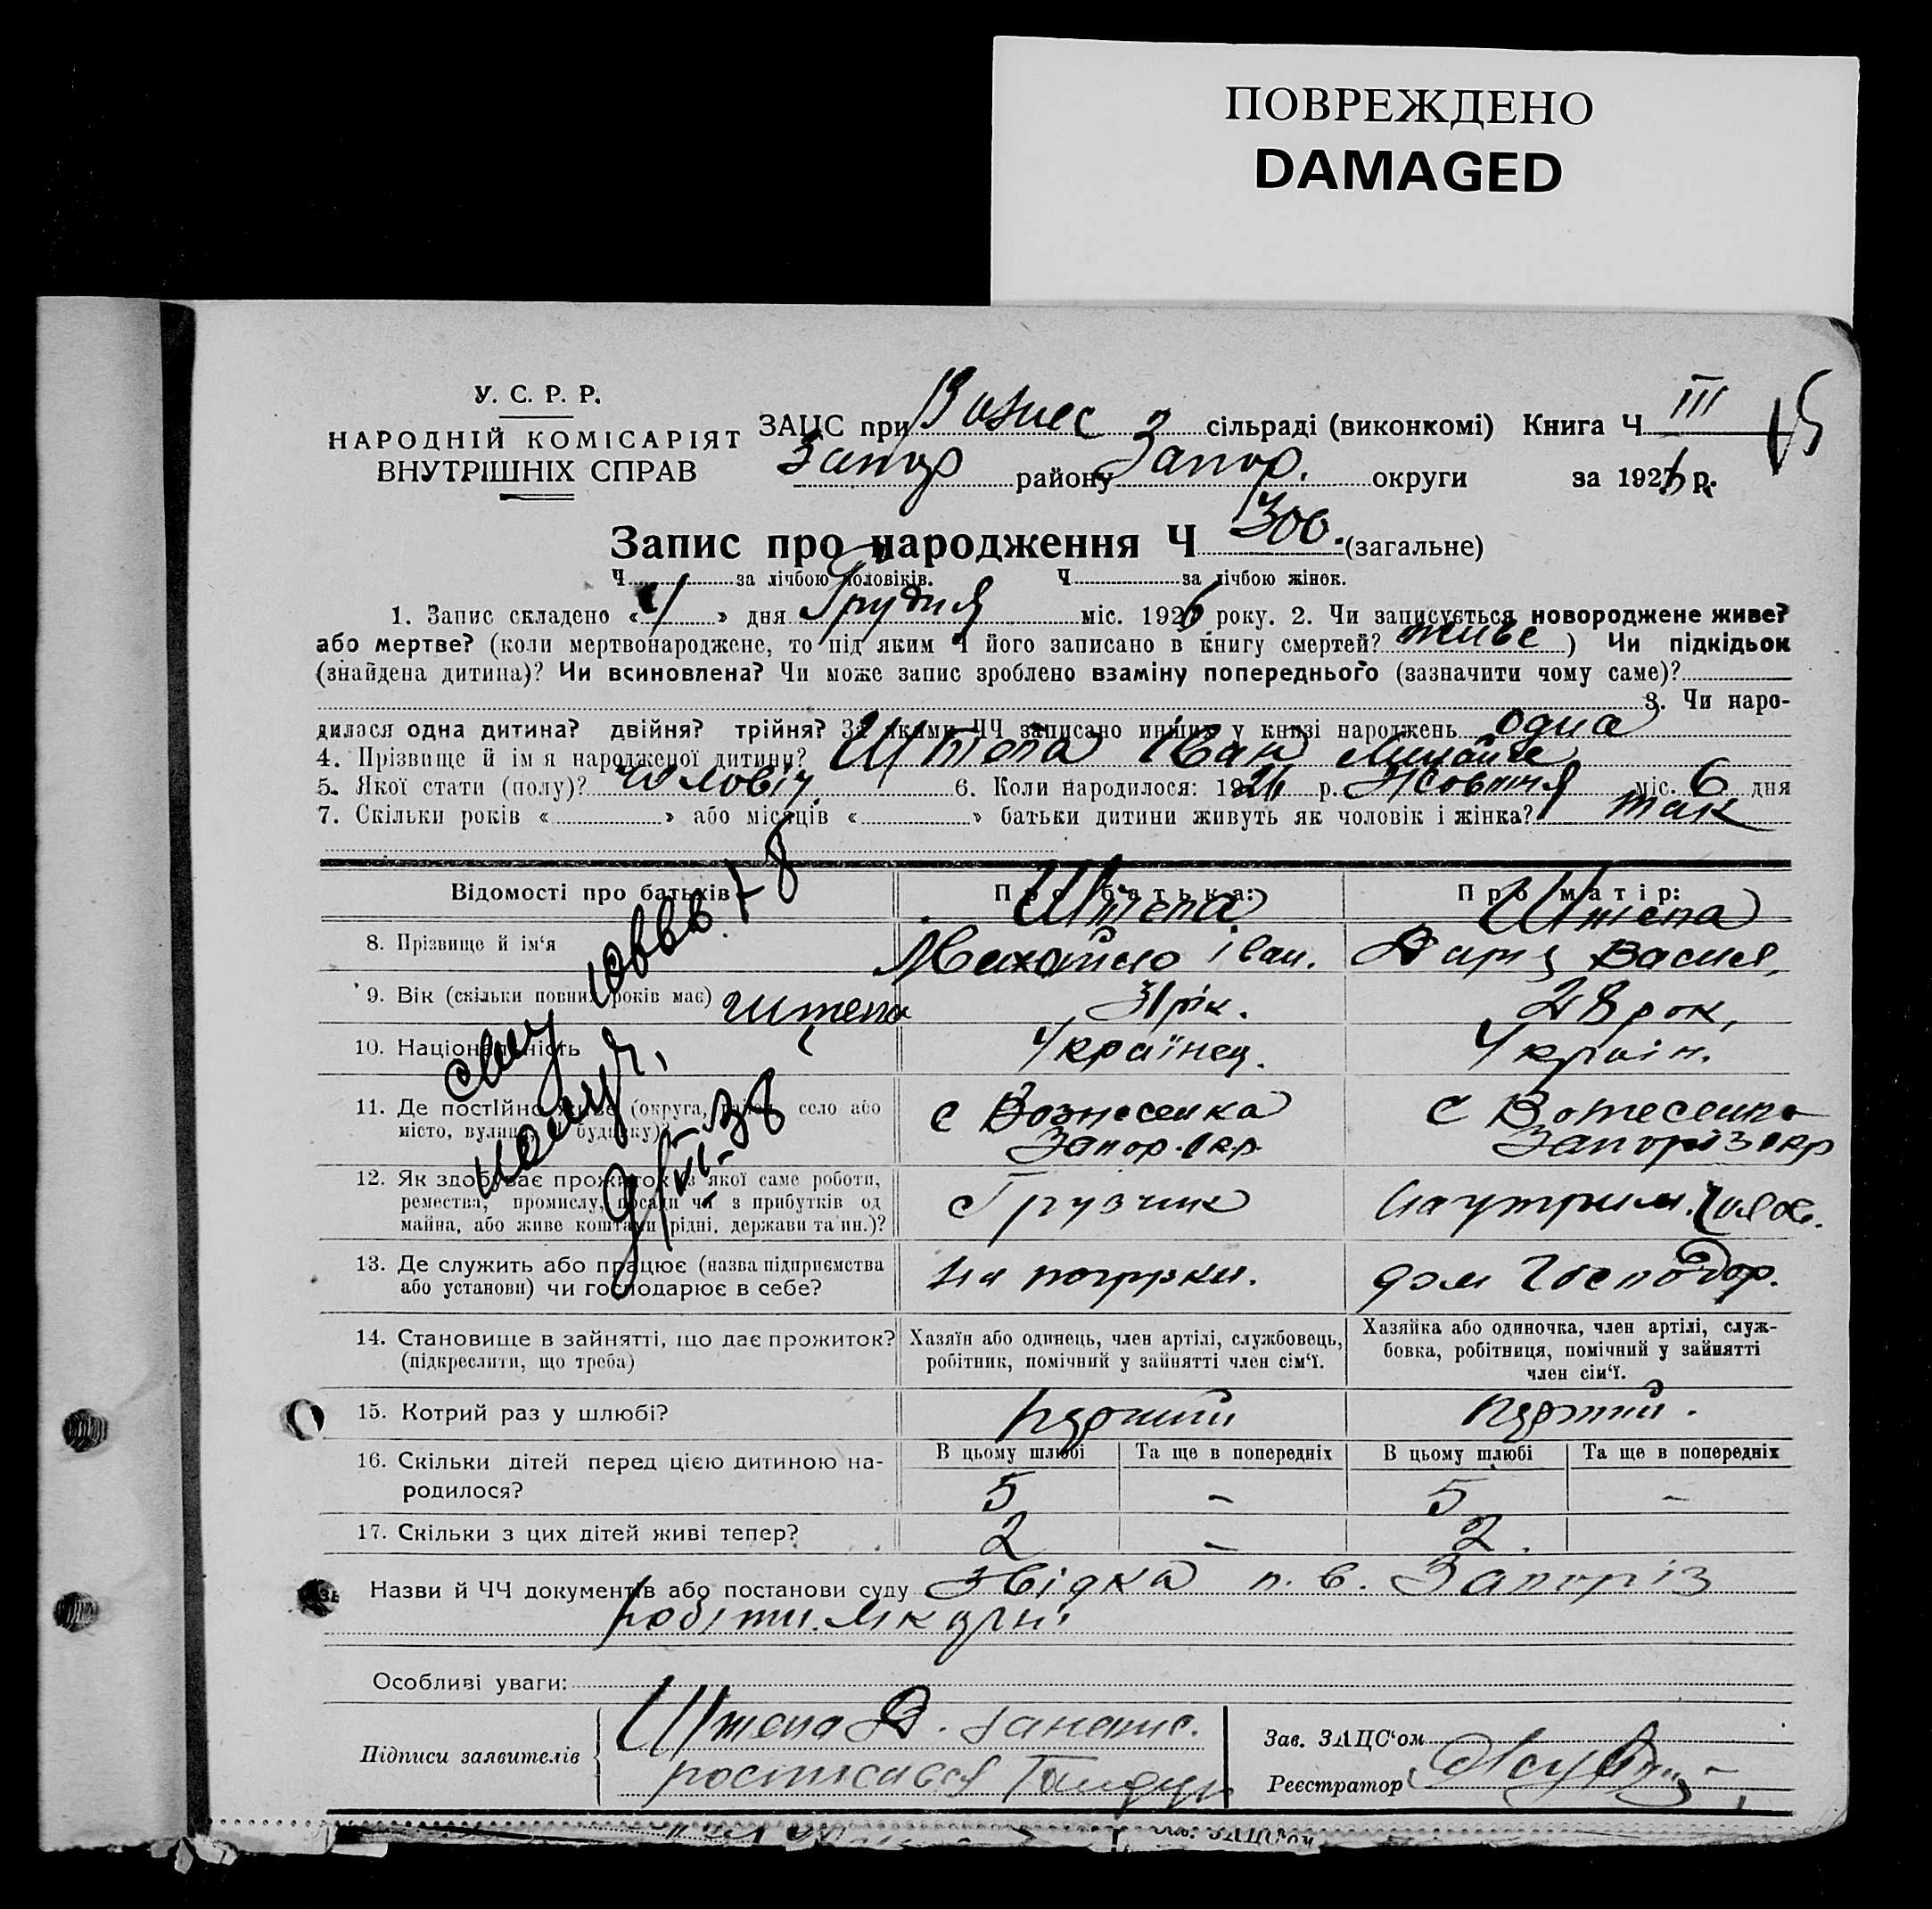 ПОВРЕЖДЕНО
DAMAGED
У. С. Р. Р.
НАРОДНІЙ КОМІСАРІЯТ
ВНУТРІШНІХ СПРАВ
ЗАЦС при Вознес сільраді (виконкомі) Книга Ч III 15
Запор району Запор. округи за 1926 р.
Запис про народження Ч 300. (загальне)
Ч за лічбою чоловіків. Ч за лічбою жінок.
1. Запис складено « 1 » дня Грудня міс. 1926 року. 2. Чи записується новороджене живе?
або мертве? (коли мертвонароджене, то під яким Ч його записано в книгу смертей? живе ) Чи підкідьок
(знайдена дитина)? Чи всиновлена? Чи може запис зроблено взаміну попереднього (зазначити чому саме)?
3. Чи наро-
дилася одна дитина? двійня? трійня? За якими ЧЧ записано инших у книзі народжень одна
4. Прізвище й ім'я народженої дитини? Штепа Іван Михайл
5. Якої стати (полу)? чоловіч. 6. Коли народилося: 1926 р. Жовтня міс. 6 дня
7. Скільки років « » або місяців « » батьки дитини живуть як чоловік і жінка? так
Відомості про батьків Про батька: Про матір:
8. Прізвище й ім‘я Штепа Михайло Іван. Штепа Дарія Васил.
9. Вік (скільки повних років має) Штепа 31 рік. 28 рок.
10. Національність Українец. Україін.
11. Де постійно живе (округа, район, село або
місто, вулиця, ч. будинку)? с Вознесенка Запор. окр. с Вознесенка Запоріз окр
12. Як здобуває прожиток (з якої саме роботи,
ремества, промислу, посади чи з прибутків од
майна, або живе коштами рідні, держави та ин.)? Грузчик на утрим.
13. Де служить або працює (назва підприємства
або установи) чи господарює в себе? на погрузки. дом господар.
14. Становище в зайнятті, що дає прожиток?
(підкреслити, що треба)
Хазяїн або одинець, член артілі, службовець,
робітник, помічний у зайнятті член сім‘ї.
Хазяйка або одиночка, член артілі, служ-
бовка, робітниця, помічний у зайнятті
член сім‘ї.
15. Котрий раз у шлюбі? перший перший.
16. Скільки дітей перед цією дитиною на-
родилося?
В цьому шлюбі Та ще в попередніх В цьому шлюбі Та ще в попередніх
5 - 5 -
17. Скільки з цих дітей живі тепер? 2 - 2.
Назви й ЧЧ документів або постанови суду Звідка п. в. Запоріз
робітн. лікарні
Особливі уваги:
Підписи заявителів Штепа Д.
Зав. ЗАЦС‘ом
Реєстратор
9/VI-38